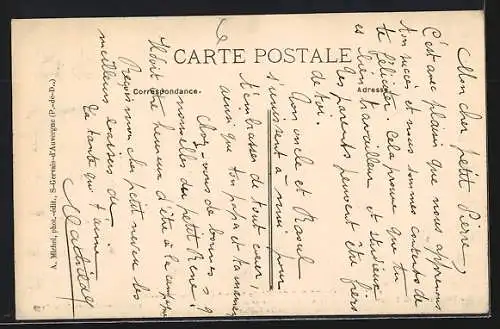 CARTE POSTALE
Correspondance.
Adresse
Mon cher petit Pierre,
C'est avec plaisir que nous apprenons
ton succès et nous sommes contents de
te féliciter. Cela prouve que tu
es bien travailleur et studieux
tes parents peuvent être fiers
de toi.
Ton oncle et Raoul
s'unissent à moi pour
t'embrasser de tout cœur,
ainsi que ton papa et ta maman
Avez-vous de bonnes
nouvelles du petit René ?
Il doit être heureux d'être à la campagne
Reçois mon cher petit neveu les
meilleurs baisers de
ta tante qui t'aime
Mathilde
A. Michel, photo.-édit., St-Germain-d'Auvergne (P.-de-D.)